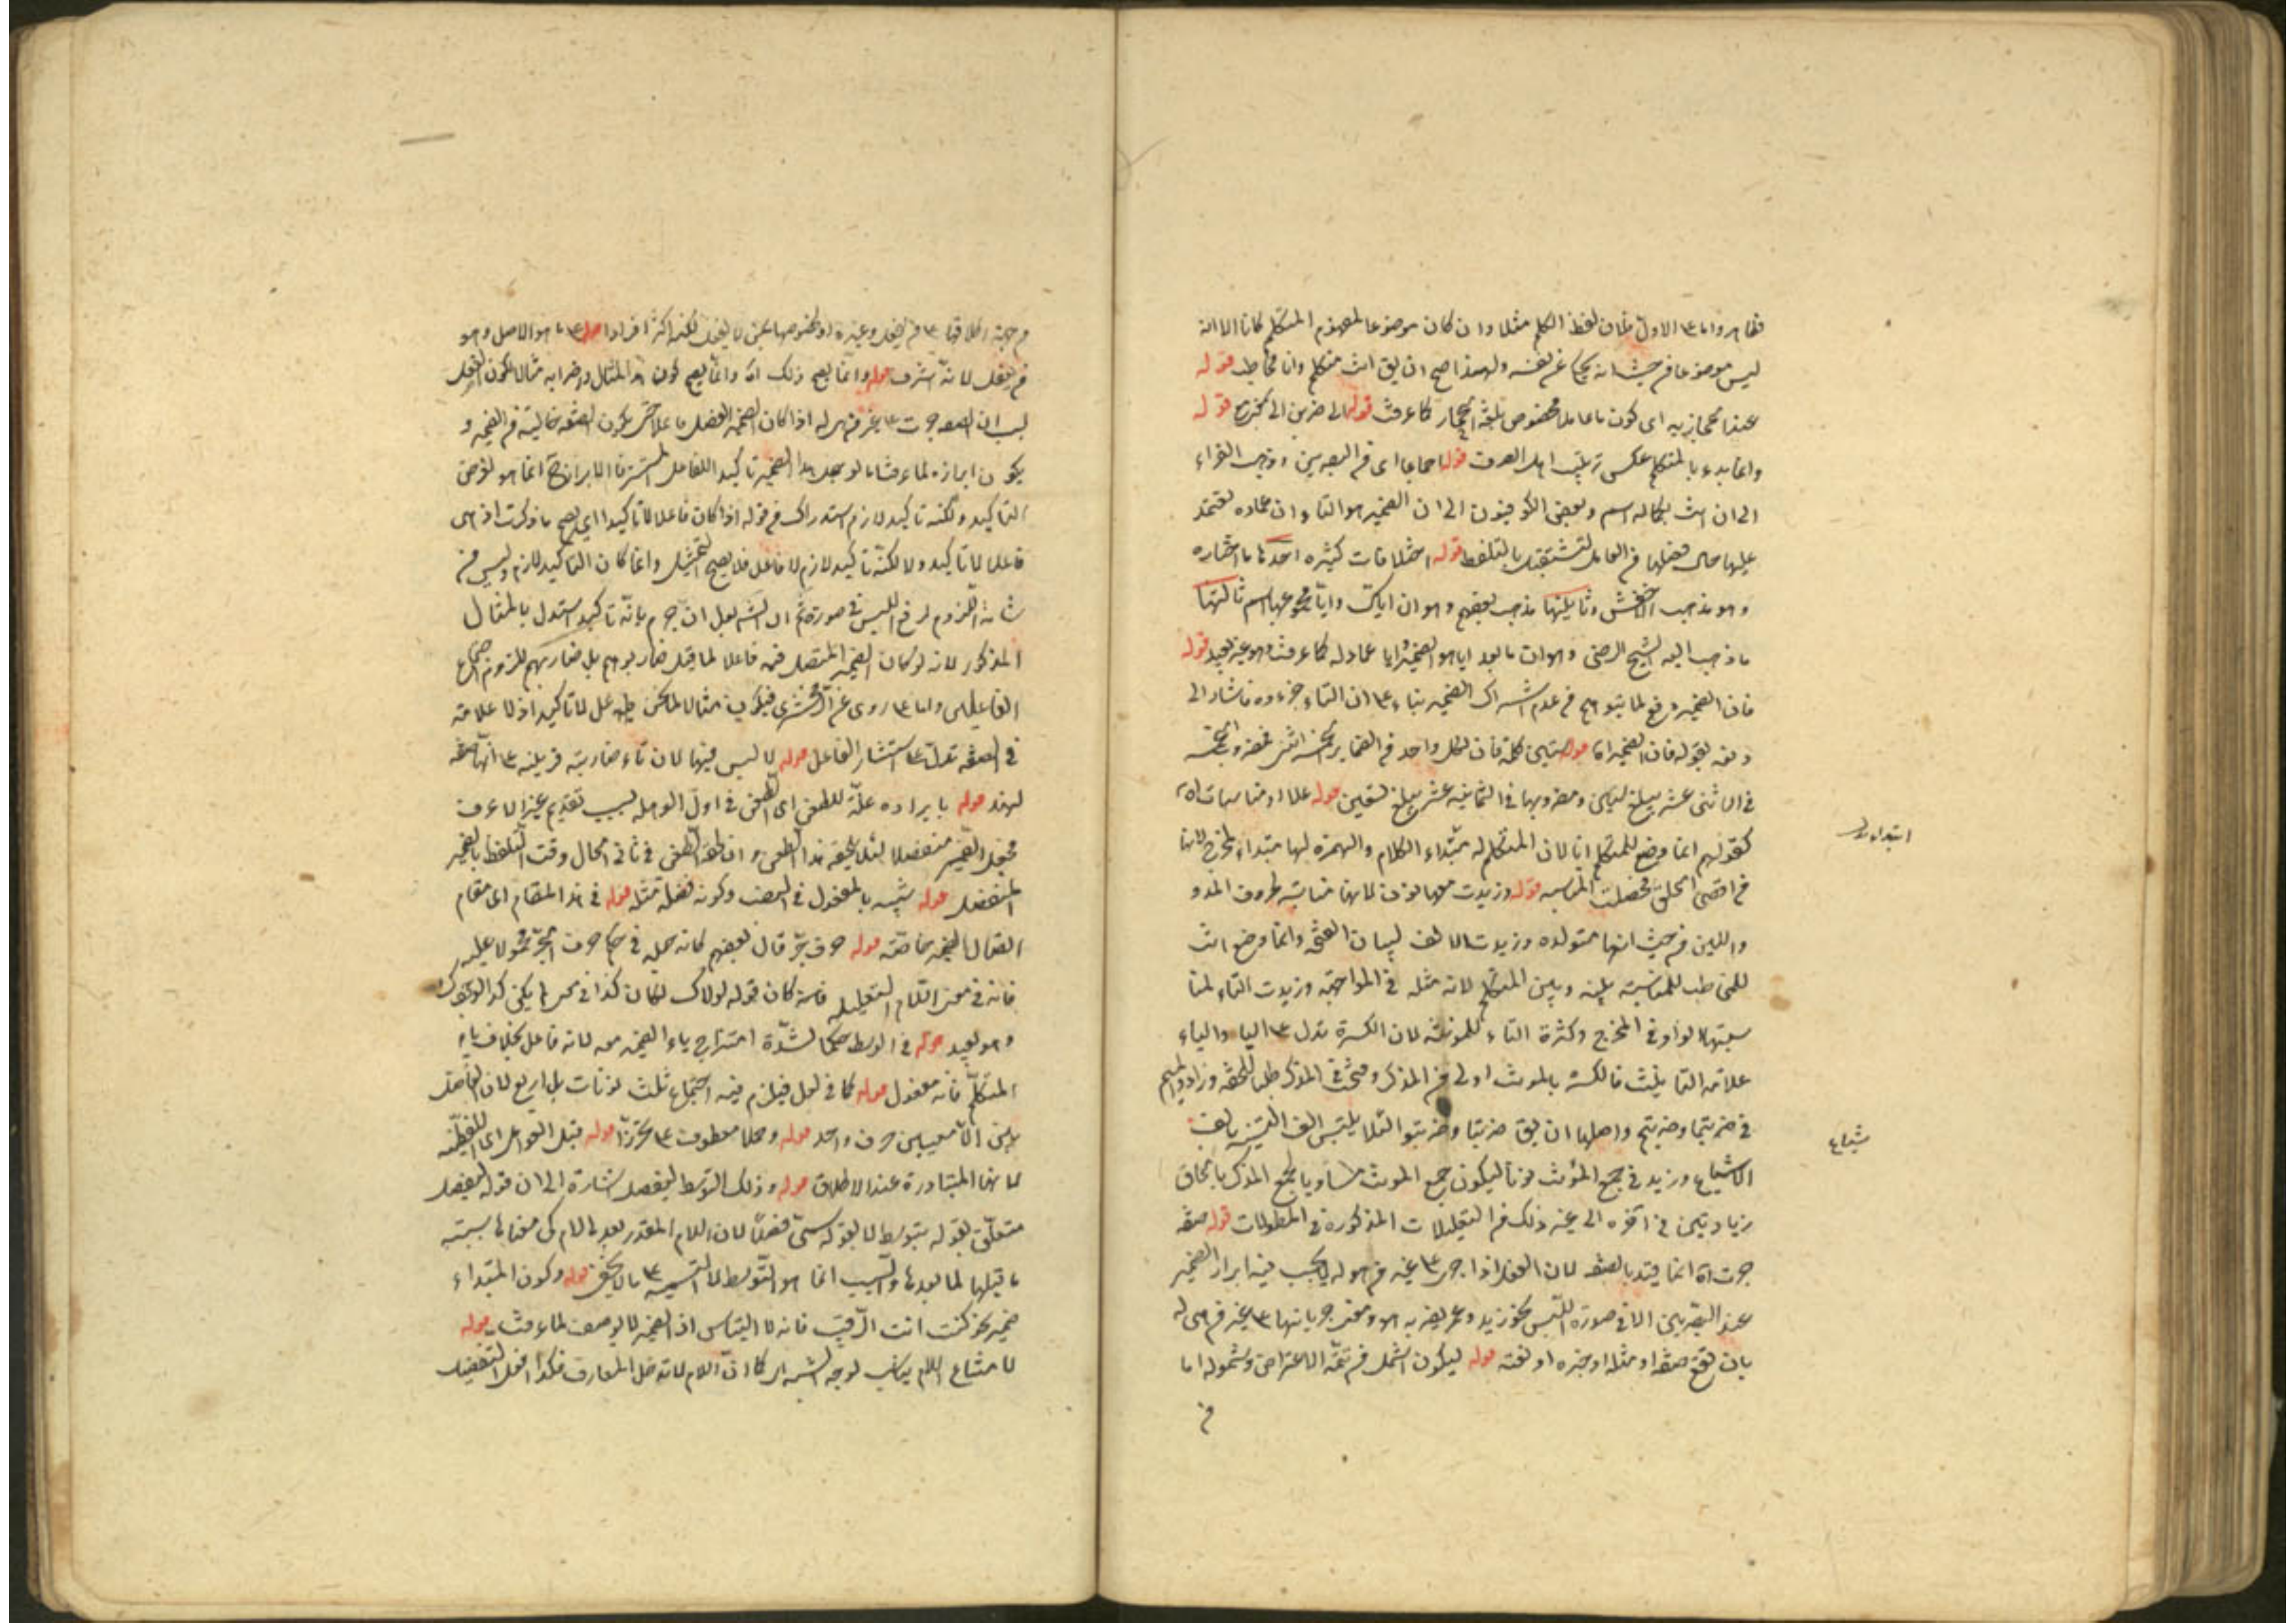 فظاهر واما على الاول فلان لفظ المتكلم مثلا وان كان موضوعا لمفهوم المتكلم كانا الا انه
ليس موضوعا من حيث انه يحكي عن نفسه ولهذا صح ان يق انت متكلم وانا مخاطب قوله
عند حجازيه اى كون ما عاملا مخصوص بلغة الحجاز كما عرفت قوله الى ضربن الى يخرج قوله
وانما بدء بالمتكلم عكس ترتيب اهل الصرف قوله اجماعا اى من البصريين وذهب الفراء
الى ان انت بكماله اسم وبعض الكوفيون الى ان الضمير هو التاء وان عماده
قوله اختلافات كثيره احدها ما اختاره
وهو مذهب الاخفش وثانيتها مذهب بعضهم وهو ان اياك وايا مجموعها اسم ثالثها
ما ذهب اليه الشيخ الرضى وهو ان ما بعد ايا هو الضمير وايا عماد له كما عرفت وهو غير بعيد قوله
فان الضمير دفع لما يتوهم من عدم اشتراك الضمير بناء على ان التاء جزءه فاشار الى
دفعه بقوله فان الضمير انما قوله ستين كلمة فان لكل واحد من الضماير
فى الاثنى عشر يبلغ ستين ومضروبها فى الثمانية عشر يبلغ تسعين قوله عللا ومناسبات اه
كقولهم انما وضع للمتكلم انا لان المتكلم له مبتداء الكلام والهمزة لها مبتداء المخرج لانها
من اقصى الحلق فحصلت المناسبه قوله وزيدت معها نون لانها مشابهة لحروف المد و
واللين من حيث انها متولدة وزيدت الالف لبيان الفتحه وانما وضع انت
للمخاطب للمناسبة بينه وبين المتكلم لانه مثله فى المواجهة وزيدت التاء لمنا
سبتها لواو فى المخرج وكثرة التاء للمونثه لان الكسرة تدل على الياء والياء
علامة التانيث فالكسرة بالمونث اولى من المذكر وفتحت فى المذكر طلبا للخفة وزادو الميم
فى ضربتما وضربتم واصلها ان يق ضربتا وضربتو لئلا يلتبس الف التثنية بالف
الاشباع وزيد فى جمع المؤنث نونا ليكون جمع المونث مساويا لجمع المذكر بالحاق
زيادتين فى آخره الى غير ذلك من التعليلات المذكورة فى المطولات قوله صفة
جرت اه انما قيد بالصفة لان الفعل اذا جرى على غير من هو له لا يجب فيه ابراز الضمير
عند البصريين الا فى صورة اللبس نحو زيد وعمر يضربه هو ومعنى جريانها على غير من هى له
بان تقع صفة او صلة او خبره او نعته قوله ليكون اشمل من تتمة الاعتراض وشموله اما
من
ابتداء
شباع
من جهة اطلاقها على من يعقل وغيره او لكنها اكثر افرادا قوله على ما هو الاصل وهو
من يعقل لانه اشرف قوله وانما يصح ذلك اه وانما يصح كون هذا المثال
لسبب ان الصفة جرت على غير من هى له اذا كان الضمير المنفصل فاعلا حتى يكون الصفة خالية من الضمير و
يكون ابرازه لما عرفت اما لو جعل هذا الضمير تاكيدا للفاعل المستتر فالابراز ح انما هو لغرض
التاكيد ولكنه تاكيد لازم استدراك من قوله اذا كان فاعلا لا تاكيدا اى يصح ما ذكرت اذ هى
فاعلا لا تاكيد ولا لكنه تاكيد لازم لا فاعل فلا يصح التمثيل وانما كان التاكيد لازم وليس من
شانه اللزوم لرفع اللبس فى صورة ثم ان الش لعل ان جزم بانه تاكيد استدل بالمثال
المذكور لانه لو كان الضمير المنفصل فيه فاعلا لما قيل ضاربوهم بل ضاربهم للزوم اجتماع
الفاعلين واما على ما روى عن الزمخشرى فيكون مثالا لما نحن فيه على لا تاكيد اذ لا علامة
فى الصفة تدل على استتار الفاعل قوله لا لبس فيها لان تاء ضاربته قرينة على انها صفة
لهند قوله بايراده علة للطعن اى الطعن فى اول الوهلة لسبب تقديم غير الاعرف
فجعل الضمير منفصلا لئلا يلحقه هذا الطعن وان لحقه الطعن فى ثانى الحال وقت التلفظ بالضمير
المنفصل قوله شبيه بالمفعول فى النصب وكونه فضلة مثله قوله فى هذا المقام اى مقام
اتصال الضمير خاصة قوله حرف جر قال بعضهم كانه حمله فى حكم حرف الجر محمولا عليه
فانه فى معنى اللام التعليليه فانه كان قوله لولاك لكان كذا فى معنى لم يكن كذا لوجودك
وهو بعيد قوله فى الوسط حكما لشدة امتزاج ياء الضمير معه لانه فاعل بخلاف ياء
المتكلم فانه مفعول قوله كما فى لعل فيلزم فيه اجتماع ثلث نونات بل اربع لان الفاصل
بين اللامين حرف واحد قوله وحملا معطوف على تحرزا قوله قبل العوامل اى اللفظيه
لانها المتبادرة عند الاطلاق قوله وذلك التوسط ليفصل اشارة الى ان قوله ليفصل
متعلق بقوله يتوسط لا بقوله يسمى فصلا لان اللام المقدر بعدها لام كى معناها سببية
ما قبلها لما بعدها والسبب انما هو التوسط لا التسمية على ما لا يخفى قوله وكون المبتداء
ضمير نحو كنت انت الرقيب فانه لا التباس اذ الضمير لا يوصف لما عرفت قوله
لامتناع اللام بيان لوجه الشبه اى كما ان اللام لا تدخل المعارف فكذا افعل التفضيل